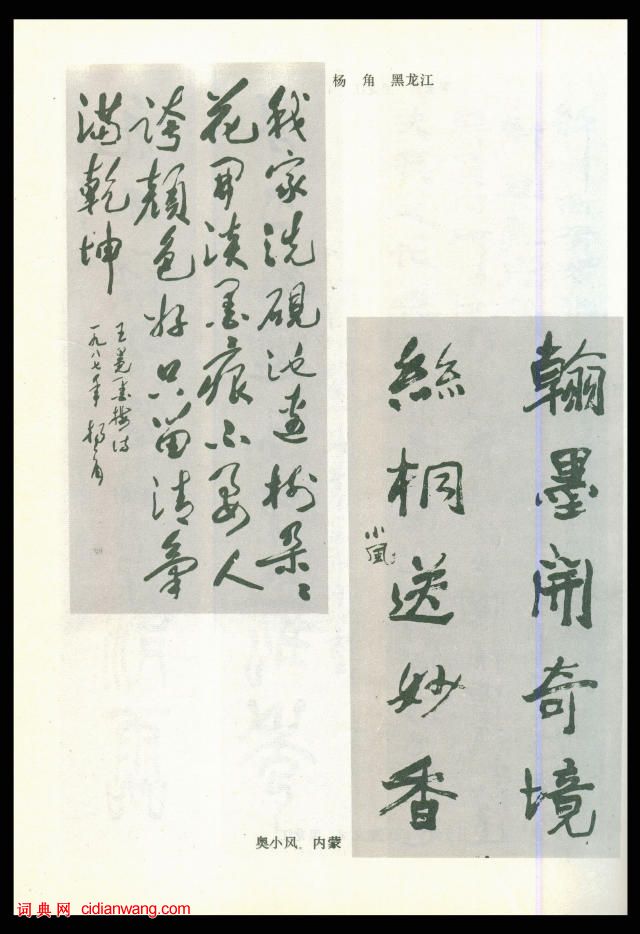 杨 角 黑龙江
我家洗硯池邊樹朵〻
花開淡墨痕不要人
誇顏色好只留清氣
滿乾坤
王冕墨梅詩
一九八七年 楊角
翰墨開奇境
絲桐送妙香
小風
奥小风 内蒙
词典网 cidianwang.com